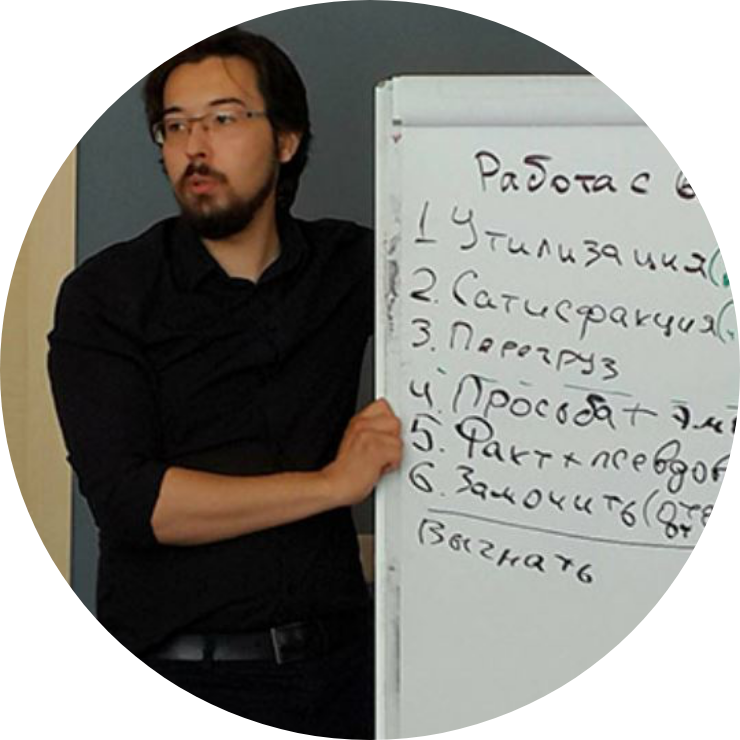 Работа с
1 Утилизация(
2. Сатисфакция(
3. Перегруз
4. Просьба + эм
5. Факт + псевдо
6. Замочить (
Выгнать